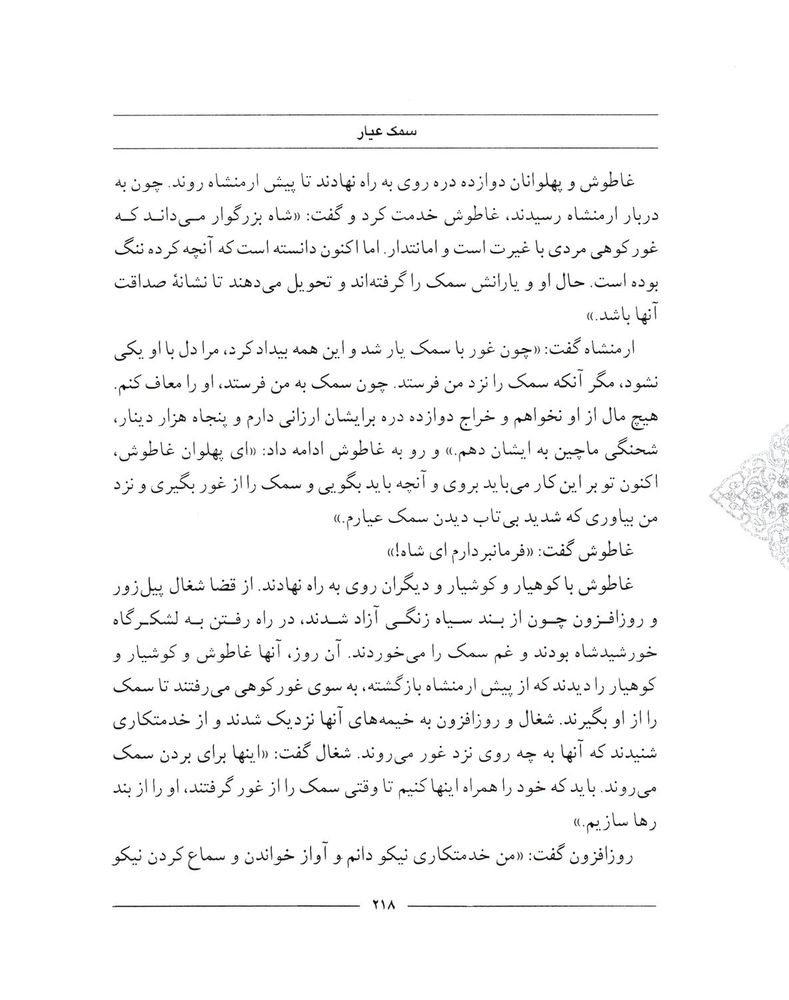 سمک عیار
غاطوش و پهلوانان دوازده دره روی به راه نهادند تا پیش ارمنشاه روند. چون به
دربار ارمنشاه رسیدند، غاطوش خدمت کرد و گفت: «شاه بزرگوار می‌داند که
غورکوهی مردی با غیرت است و امانتدار. اما اکنون دانسته است که آنچه کرده ننگ
بوده است. حال او و یارانش سمک را گرفته‌اند و تحویل می‌دهند تا نشانهٔ صداقت
آنها باشد.»
ارمنشاه گفت: «چون غور با سمک یار شد و این همه بیداد کرد، مرا دل با او یکی
نشود، مگر آنکه سمک را نزد من فرستد. چون سمک به من فرستد، او را معاف کنم.
هیچ مال از او نخواهم و خراج دوازده دره برایشان ارزانی دارم و پنجاه هزار دینار،
شحنگی ماچین به ایشان دهم.» و رو به غاطوش ادامه داد: «ای پهلوان غاطوش،
اکنون تو بر این کار می‌باید بروی و آنچه باید بگویی و سمک را از غور بگیری و نزد
من بیاوری که شدید بی‌تاب دیدن سمک عیارم.»
غاطوش گفت: «فرمانبردارم ای شاه!»
غاطوش با کوهیار و کوشیار و دیگران روی به راه نهادند. از قضا شغال پیل‌زور
و روزافـزون چـون از بـند سـیاه زنگـی آزاد شـدند، در راه رفـتن بـه لشکـرگاه
خورشیدشاه بودند و غم سمک را می‌خوردند. آن روز، آنها غاطوش و کوشیار و
کوهیار را دیدند که از پیش ارمنشاه بازگشته، به سوی غورکوهی می‌رفتند تا سمک
را از او بگیرند. شغال و روزافزون به خیمه‌های آنها نزدیک شدند و از خدمتکاری
شنیدند که آنها به چه روی نزد غور می‌روند. شغال گفت: «اینها برای بردن سمک
می‌روند. باید که خود را همراه اینها کنیم تا وقتی سمک را از غور گرفتند، او را از بند
رها سازیم.»
روزافزون گفت: «من خدمتکاری نیکو دانم و آواز خواندن و سماع کردن نیکو
۲۱۸